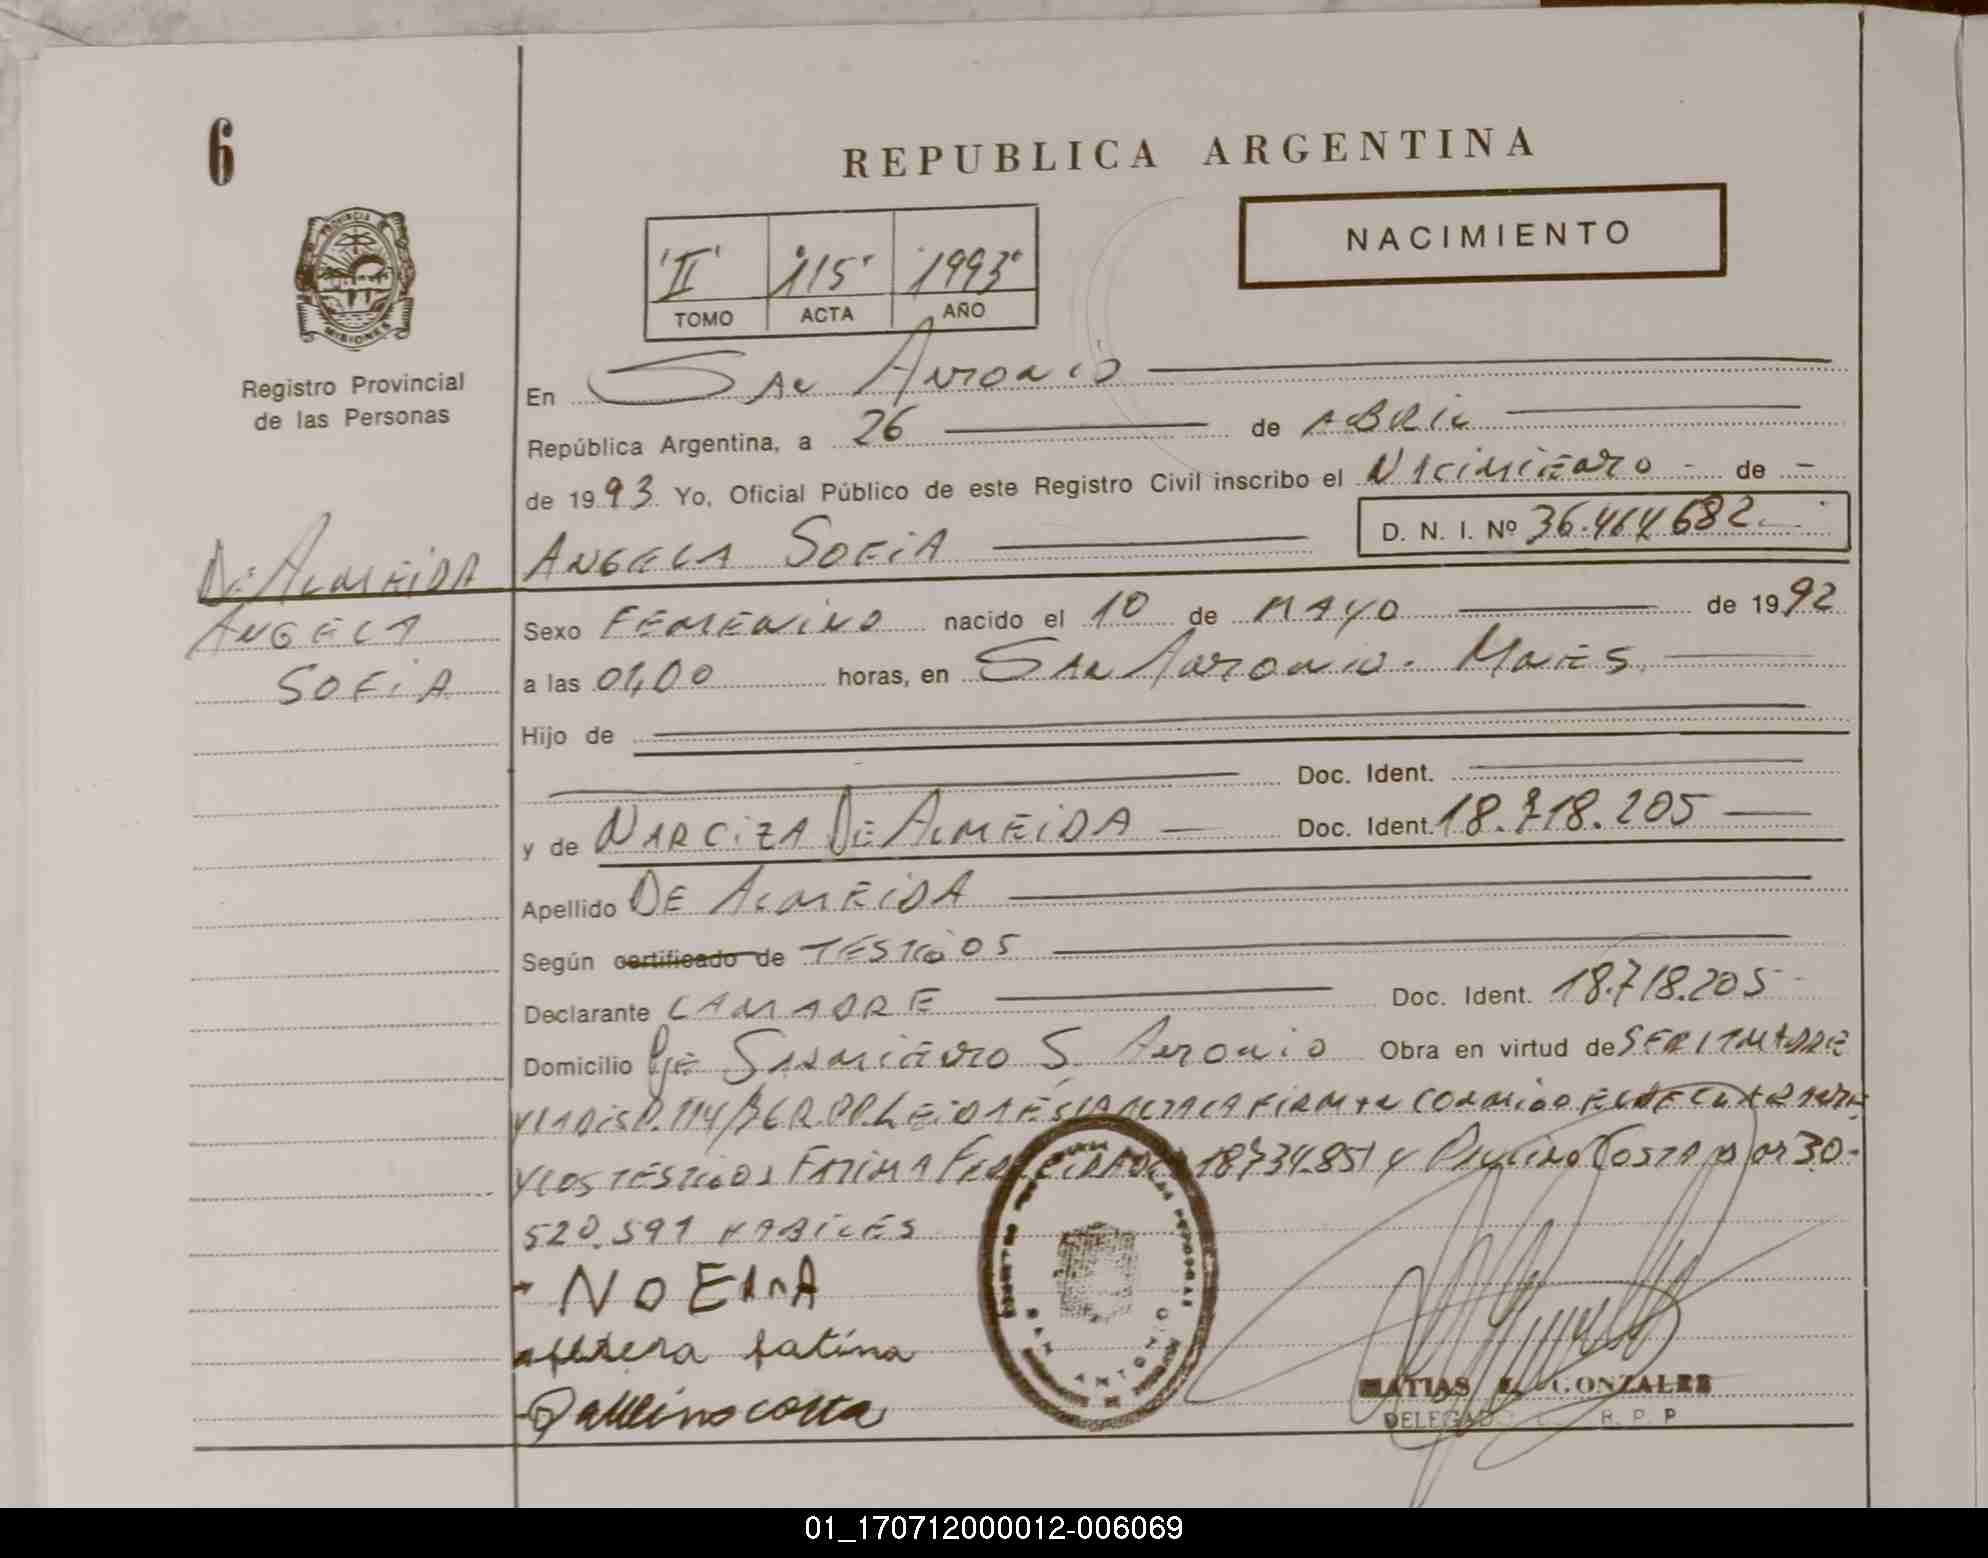 6
REPUBLICA ARGENTINA
NACIMIENTO
'II' 115 1993
TOMO ACTA AÑO
PROVINCIA
MISIONES
Registro Provincial
de las Personas
En San Antonio
República Argentina, a 26 de ABRIL
de 1993 Yo, Oficial Público de este Registro Civil inscribo el NACIMIENTO - de -
D. N. I. Nº 36.464.682
DE ALMEIDA
ANGELA
SOFIA
ANGELA SOFIA
Sexo FEMENINO nacido el 10 de MAYO de 1992
a las 01,00 horas, en San Antonio. Mnes.
Hijo de
Doc. Ident.
y de NARCIZA DE ALMEIDA Doc. Ident. 18.718.205
Apellido DE ALMEIDA
Según certificado de TESTIGOS
Declarante LA MADRE Doc. Ident. 18.718.205
Domicilio Pje SARMIENTO S. Antonio Obra en virtud de SER LA MADRE
Y LA DISP. 114/ R.P.P. LEIDA ESTA ACTA LA FIRMAN CONMIGO EL DECLARANTE
Y LOS TESTIGOS FATIMA 18.734.851 y COSTA 30.
520.591 HABILES
NOEMA
fatima
costa
SAN ANTONIO
MATIAS GONZALEZ
DELEGADO R. P. P
01_170712000012-006069